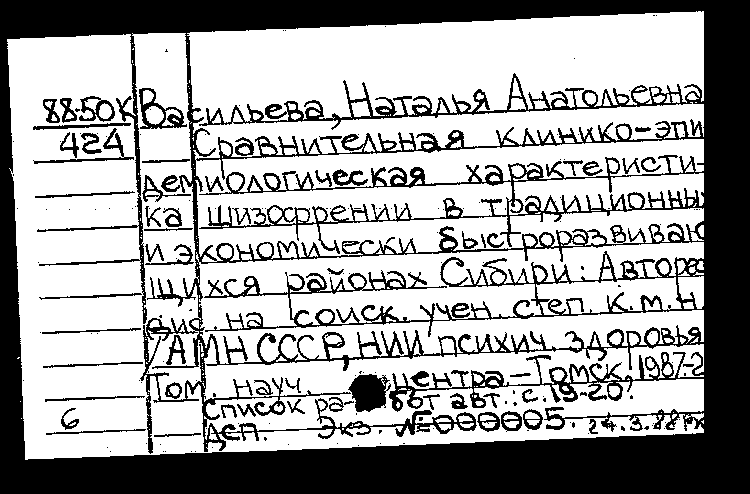 88-50К Васильева, Наталья Анатольевна
424 Сравнительная клинико-эпи
демиологическая характеристи-
ка шизофрении в традиционны
и экономически быстроразвиваю
щихся районах Сибири: Авторе
дис. на соиск. учен. степ. к.м.н.
/АМН СССР, НИИ психич. здоровья
Том. науч. центра.-Томск.1987-2
Список ра-бот авт.: с.19-20.
6 Деп. Экз. №000005. 24.3.88